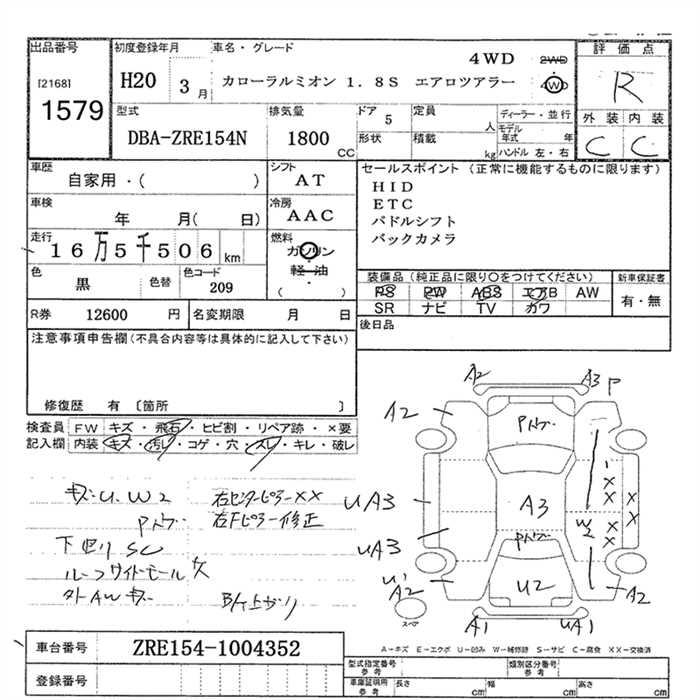 出品番号
[2168]
1579
初度登録年月
H20 3月
車名・グレード
4WD
カローラルミオン 1.8S エアロツアラー
2WD
4WD
評価点
R
外装 内装
C C
型式
DBA-ZRE154N
排気量
1800 CC
ドア 5
形状
定員 人
積載 kg
ディーラー・並行
モデル年式 年
ハンドル 左・右
車歴
自家用・( )
シフト
AT
車検
年 月( 日)
冷房
AAC
走行
16万5千506 km
燃料
ガソリン
軽・油
( )
色
黒
色替
色コード
209
R券 12600 円
名変期限 月 日
セールスポイント (正常に機能するものに限ります)
HID
ETC
パドルシフト
バックカメラ
装備品 (純正品に限り○をつけてください)
PS PW ABS エアB AW
SR ナビ TV カワ
新車保証書
有・無
後日品
注意事項申告欄 (不具合内容等は具体的に記入して下さい)
修復歴 有 〔箇所 〕
検査員記入欄
FW キズ・飛石・ヒビ割・リペア跡・×要
内装 キズ・汚レ・コゲ・穴・スレ・キレ・破レ
キズ・U.W2
右センターピラーXX
右Fピラー修正
下回りSC
ルーフサイドモール欠
外AWキズ
A2
A3 P
A2
UA3
A3
UA3
W2
××
××
××
××
U2
A2
A2
A1
UA1
スペア
A-キズ E-エクボ U-凹み W-補修跡 S-サビ C-腐食 XX-交換済
車台番号
ZRE154-1004352
登録番号
型式指定番号
参考
類別区分番号
参考
車庫証明用
参考
長さ cm
幅 cm
高さ cm